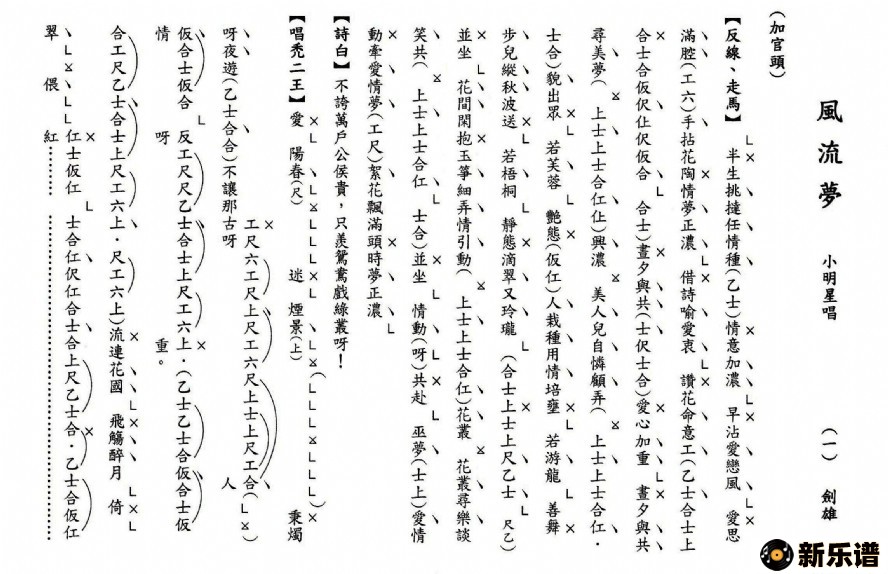 風流夢 小明星唱 (一) 劍雄
(加官頭)
【反線、走馬】 半生挑撻任情種(乙士)情意加濃 早沾愛戀風 愛思
滿腔(工六)手拈花陶情夢正濃 借詩喻愛衷 讚花命意工(乙士合士上
合士合仮伬仩伬仮合 合士)晝夕與共(士伬士合)愛心加重 晝夕與共
尋美夢( 上士上士合仜仩)興濃 美人兒自憐顧弄( 上士上士合仜.
士合)貌出眾 若芙蓉 艷態(仮仜)人栽種用情培壅 若游龍 善舞
步兒縱秋波送 若梧桐 靜態滴翠又玲瓏 (合士上士上尺乙士 尺乙)
並坐 花間閑抱玉箏細弄情引動( 上士上士合仜)花叢 花叢尋樂談
笑共( 上士上士合仜 士合)並坐 情動(呀)共赴 巫夢(士上)愛情
動牽愛情夢(工尺)絮花飄滿頭時夢正濃
【詩白】不誇萬戶公侯貴，只羨鴛鴦戲綠叢呀！
【唱禿二王】愛 陽春(尺) 迷 煙景(上) 秉燭
呀夜遊(乙士合合)不讓那古呀 工尺六工尺上尺工六尺上士上尺工合 人
情 仮合士仮合 呀 反工尺尺乙士合士上尺工六上.(乙士乙士合仮合士仮 重。
合工尺乙士合士上尺工六上.尺工六上)流連花國 飛觴醉月 倚
翠 偎 紅 仜士仮仜 士合仜伬仜合士合上尺乙士合.乙士合仮仜
新乐谱